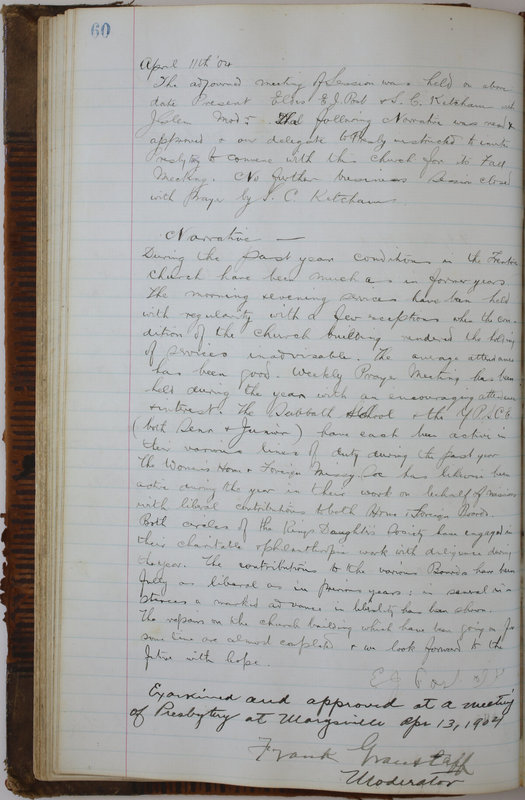 60
April 11th '04
The adjourned meeting of Session was held on above
date Present Elders E. J. Post & S. C. Ketcham with
Mod: The following Narrative was read &
approved & our delegate to Presby instructed to invite
Presbytery to convene with this church for its Fall
Meeting. No further business Session closed
with Prayer by S. C. Ketcham
Narrative —
During the past year conditions in the Trenton
Church have been much as in former years.
The morning & evening services have been held
with regularity with a few exceptions when the con-
dition of the church building rendered the holding
of services inadvisable. The average attendance
has been good. Weekly Prayer Meeting has been
held during the year with an encouraging attendance
& interest. The Sabbath School & the Y.P.S.C.E.
(both Senior & Junior) have each been active in
their various lines of duty during the past year
The Womens Home & Foreign Missry. Soc has likewise been
active during the year in their work on behalf of missions
with liberal contributions to both Home & Foreign Boards.
Both circles of the Kings Daughters Society have engaged in
their charitable & philanthropic work with diligence during
the year. The contributions to the various Boards have been
fully as liberal as in previous years; in several in-
stances a marked advance in liberality has been shown.
The repairs on the church building which have been going on for
some time are almost completed & we look forward to the
future with hope.
E J Post
Examined and approved at a meeting
of Presbytery at Marysville Apr 13, 1904
Frank Granstaff
Moderator